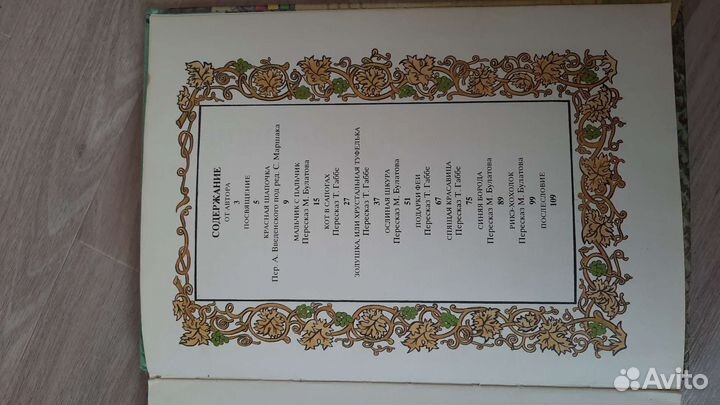 СОДЕРЖАНИЕ
ОТ АВТОРА
3
ПОСВЯЩЕНИЕ
5
КРАСНАЯ ШАПОЧКА
Пер. А. Введенского под ред. С. Маршака
9
МАЛЬЧИК С ПАЛЬЧИК
Пересказ М. Булатова
15
КОТ В САПОГАХ
Пересказ Т. Габбе
27
ЗОЛУШКА, ИЛИ ХРУСТАЛЬНАЯ ТУФЕЛЬКА
Пересказ Т. Габбе
37
ОСЛИНАЯ ШКУРА
Пересказ М. Булатова
51
ПОДАРКИ ФЕИ
Пересказ Т. Габбе
67
СПЯЩАЯ КРАСАВИЦА
Пересказ Т. Габбе
75
СИНЯЯ БОРОДА
Пересказ М. Булатова
89
РИКЭ-ХОХОЛОК
Пересказ М. Булатова
99
ПОСЛЕСЛОВИЕ
109
Avito